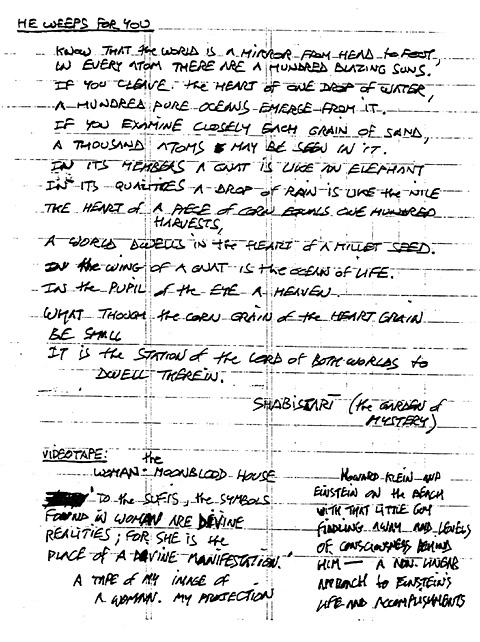 HE WEEPS FOR YOU
KNOW THAT the WORLD IS A MIRROR FROM HEAD to FOOT,
IN EVERY ATOM THERE ARE A HUNDRED BLAZING SUNS.
IF YOU CLEAVE the HEART OF ONE DROP OF WATER,
A HUNDRED PURE OCEANS EMERGE FROM IT.
IF YOU EXAMINE CLOSELY EACH GRAIN OF SAND,
A THOUSAND ATOMS MAY BE SEEN IN IT.
IN ITS MEMBERS A GNAT IS LIKE AN ELEPHANT
IN ITS QUALITIES A DROP of RAIN IS LIKE the NILE
THE HEART of A PIECE of CORN EQUALS ONE HUNDRED
HARVESTS,
A WORLD DWELLS IN the HEART of A MILLET SEED.
IN the WING OF A GNAT IS the OCEAN of LIFE.
IN the PUPIL of the EYE A HEAVEN.
WHAT THOUGH the CORN GRAIN of the HEART GRAIN
BE SMALL
IT IS the STATION of the LORD of BOTH WORLDS to
DWELL THEREIN.
SHABISTARI (the GARDEN of
MYSTERY)
VIDEOTAPE: the
WOMAN - MOONBLOOD HOUSE
"TO the SUFIS, the SYMBOLS
FOUND IN WOMAN ARE DIVINE
REALITIES; FOR SHE IS the
PLACE OF A DIVINE MANIFESTATION."
A TAPE of MY IMAGE OF
A WOMAN. MY PROJECTION
HOWARD KLEIN AND
EINSTEIN ON the BEACH
WITH THAT LITTLE GUY
FIDDLING AWAY AND LEVELS
OF CONSCIOUSNESS BEHIND
HIM — A NON-LINEAR
APPROACH to EINSTEIN'S
LIFE AND ACCOMPLISHMENTS